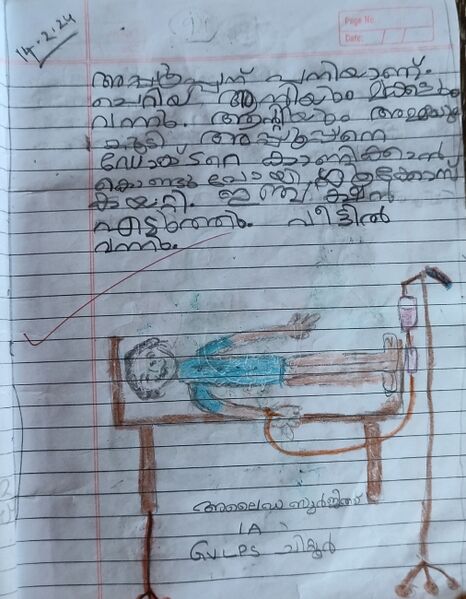 14.2.24
Page No.
Date:
അപ്പൂപ്പന് പനിയാണ്.
ചെറിയ ആന്റിയും മക്കളും
വന്നു. ആന്റിയും അമ്മയും
കൂടി അപ്പൂപ്പനെ
ഡോക്ടറെ കാണിക്കാൻ
കൊണ്ടുപോയി. ഗ്ലൂക്കോസ്
കയറ്റി. ഇഞ്ചക്ഷൻ
എടുത്തു. വീട്ടിൽ
വന്നു.
1A
GVLPS ചിറ്റൂർ